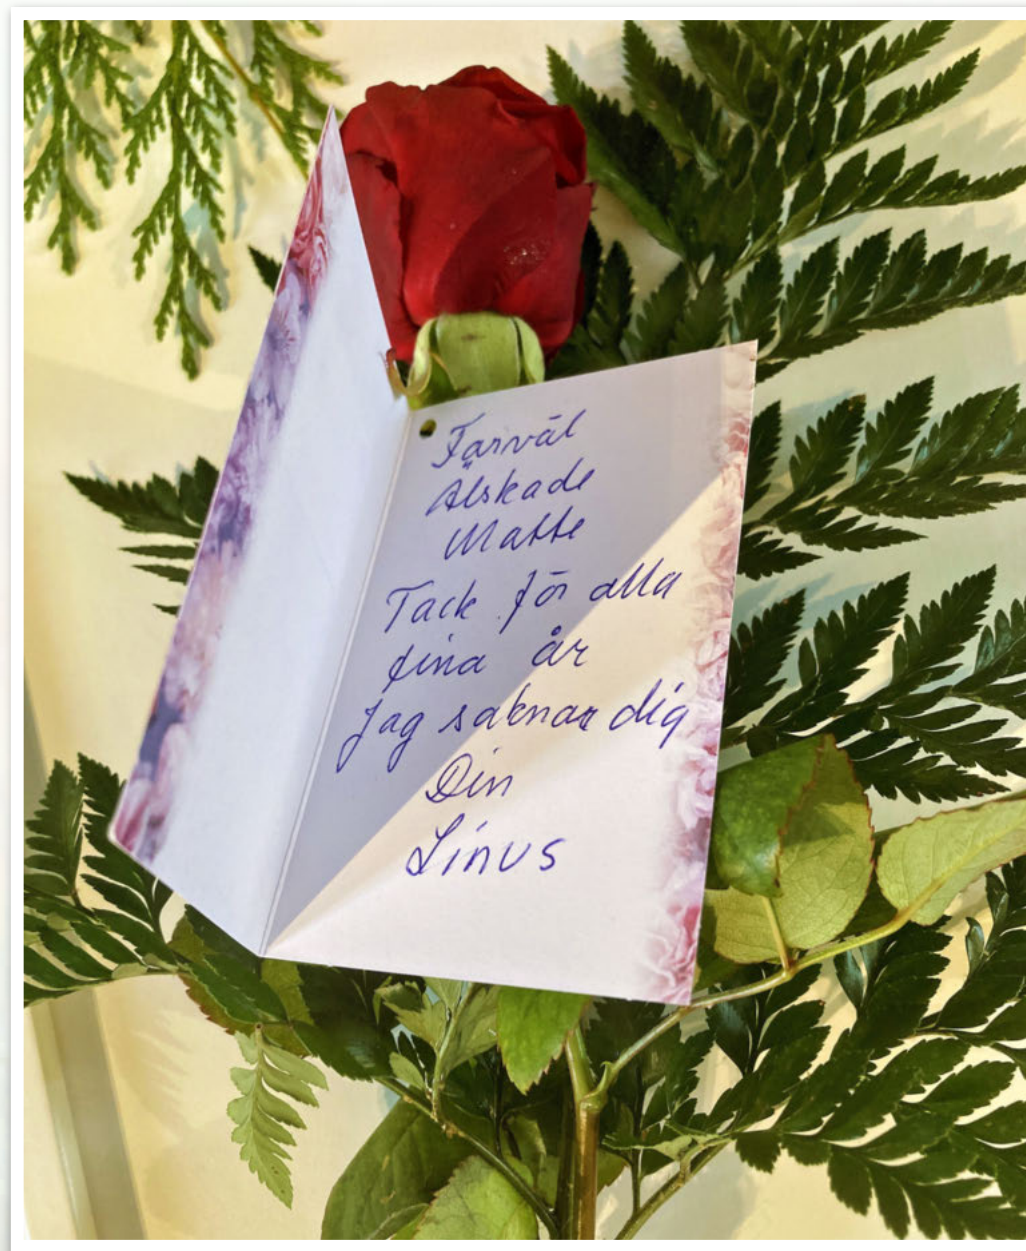 Farväl
Älskade
Matte
Tack för alla
fina år
Jag saknar dig
Din
Linus